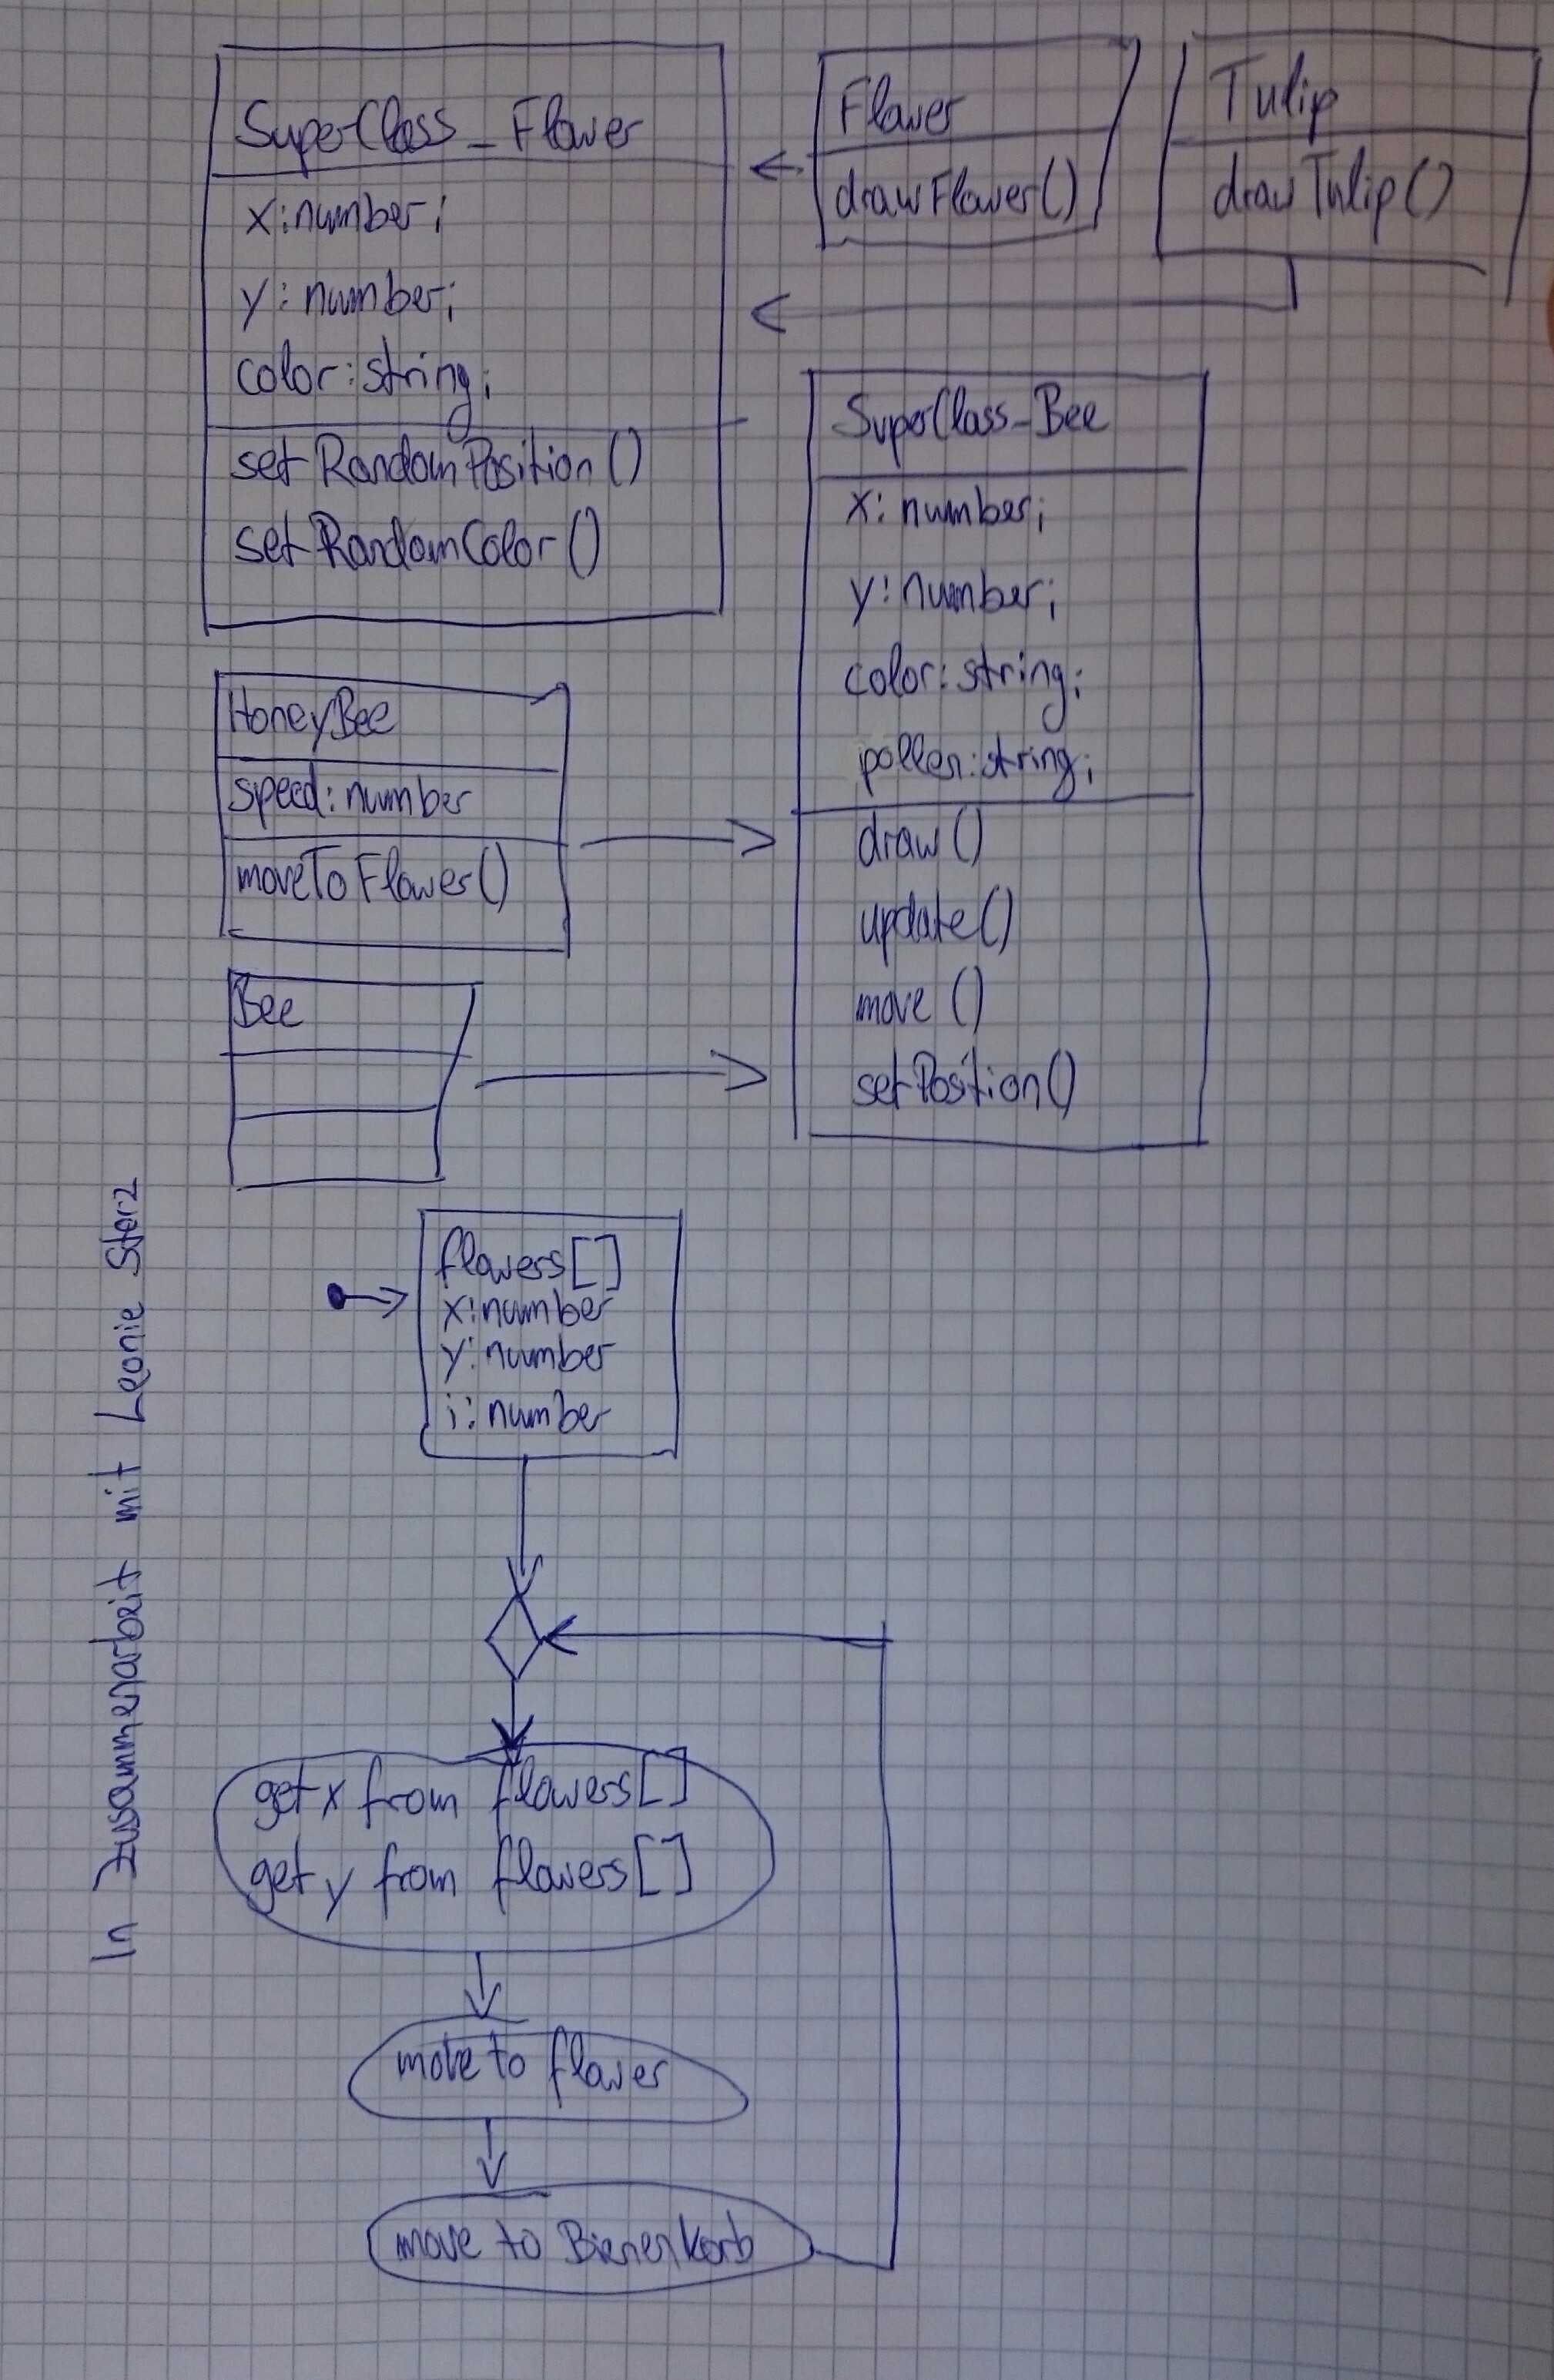 SuperClass_Flower
x:number;
y:number;
color:string;
setRandomPosition()
setRandomColor()
Flower
drawFlower()
Tulip
drawTulip()
SuperClass_Bee
x:number;
y:number;
color:string;
pollen:string;
draw()
update()
move()
setPosition()
HoneyBee
speed:number
moveToFlower()
Bee
flowers[]
x:number
y:number
i:number
get x from flowers[]
get y from flowers[]
move to flower
move to Bienenkorb
In Zusammenarbeit mit Leonie Storz